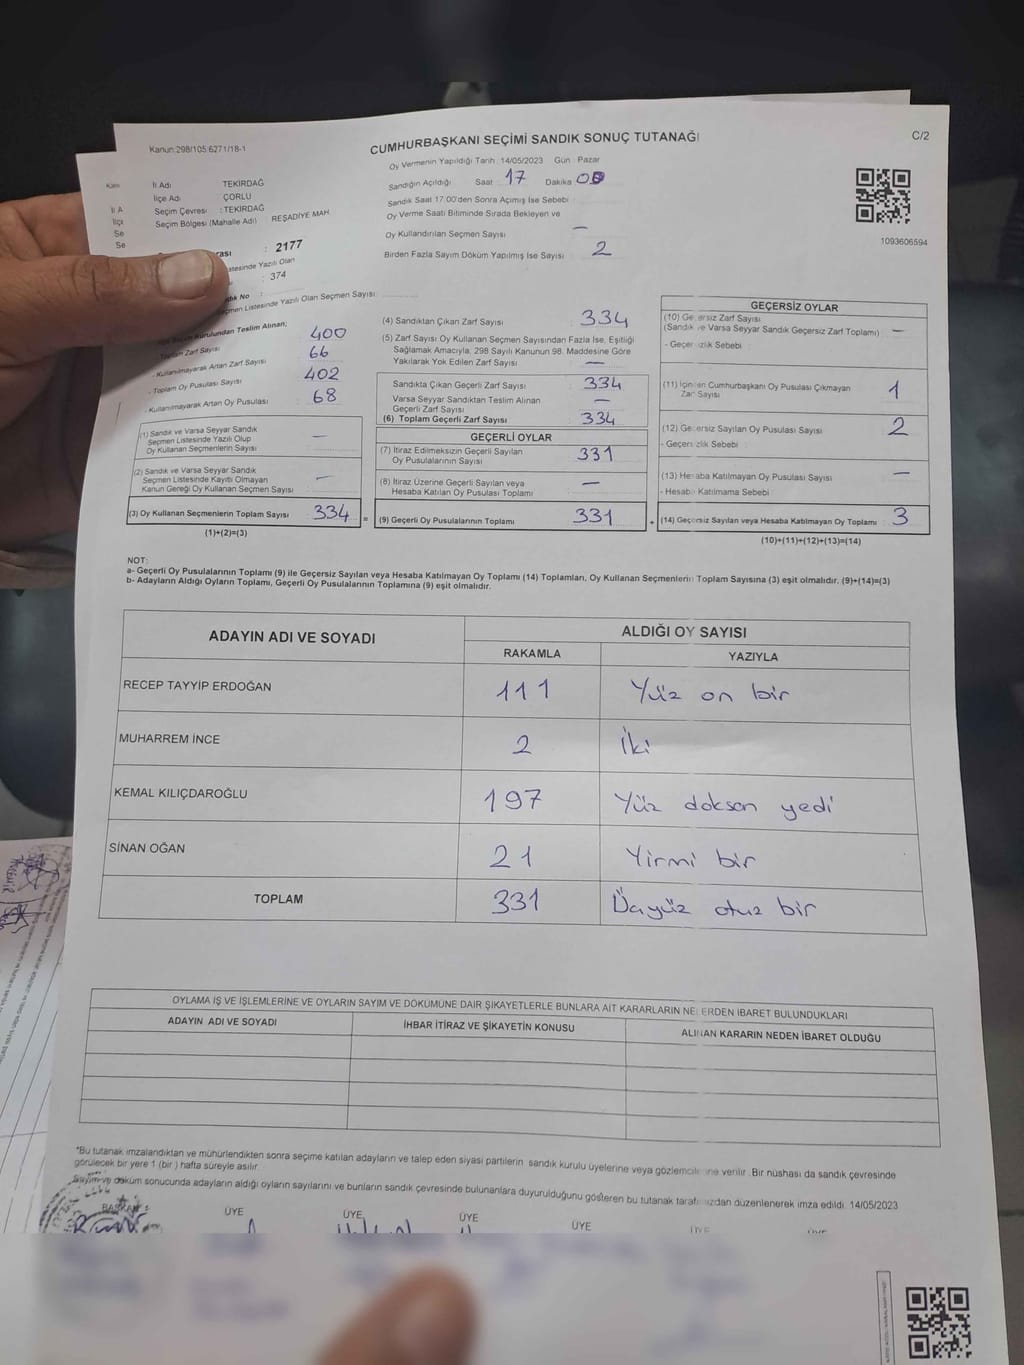 CUMHURBAŞKANI SEÇİMİ SANDIK SONUÇ TUTANAĞI
C/2
Kanun:298/105:6271/18-1
Oy Vermenin Yapıldığı Tarih :14/05/2023 Gün : Pazar
Sandığın Açıldığı Saat : 17 Dakika
Sandık Saat 17:00'den Sonra Açımış İse Sebebi :
Oy Verme Saati Bitiminde Sırada Bekleyen ve
Oy Kullandırılan Seçmen Sayısı —
Birden Fazla Sayım Döküm Yapılmış İse Sayısı 2
1093606594
İl Adı TEKİRDAĞ
İlçe Adı ÇORLU
Seçim Çevresi : TEKİRDAĞ
Seçim Bölgesi (Mahalle Adı) : REŞADİYE MAH.
: 2177
Listesinde Yazılı Olan
: 374
No :
Seçmen Listesinde Yazılı Olan Seçmen Sayısı :
Kurulundan Teslim Alınan;
Toplam Zarf Sayısı 400
- Kullanılmayarak Artan Zarf Sayısı 66
- Toplam Oy Pusulası Sayısı 402
- Kullanılmayarak Artan Oy Pusulası 68
(1) Sandık ve Varsa Seyyar Sandık
Seçmen Listesinde Yazılı Olup
Oy Kullanan Seçmenlerin Sayısı —
(2) Sandık ve Varsa Seyyar Sandık
Seçmen Listesinde Kayıtlı Olmayan
Kanun Gereği Oy Kullanan Seçmen Sayısı —
(3) Oy Kullanan Seçmenlerin Toplam Sayısı 334 =
(1)+(2)=(3)
(4) Sandıktan Çıkan Zarf Sayısı 334
(5) Zarf Sayısı Oy Kullanan Seçmen Sayısından Fazla İse, Eşitliği
Sağlamak Amacıyla, 298 Sayılı Kanunun 98. Maddesine Göre
Yakılarak Yok Edilen Zarf Sayısı —
Sandıkta Çıkan Geçerli Zarf Sayısı 334
Varsa Seyyar Sandıktan Teslim Alınan
Geçerli Zarf Sayısı —
(6) Toplam Geçerli Zarf Sayısı 334
GEÇERLİ OYLAR
(7) İtiraz Edilmeksizin Geçerli Sayılan
Oy Pusulalarının Sayısı 331
(8) İtiraz Üzerine Geçerli Sayılan veya
Hesaba Katılan Oy Pusulası Toplamı —
(9) Geçerli Oy Pusulalarının Toplamı 331 +
GEÇERSİZ OYLAR
(10) Geçersiz Zarf Sayısı
(Sandık ve Varsa Seyyar Sandık Geçersiz Zarf Toplamı) —
- Geçersizlik Sebebi :
(11) İçinden Cumhurbaşkanı Oy Pusulası Çıkmayan
Zarf Sayısı 1
(12) Geçersiz Sayılan Oy Pusulası Sayısı 2
- Geçersizlik Sebebi :
(13) Hesaba Katılmayan Oy Pusulası Sayısı —
- Hesaba Katılmama Sebebi :
(14) Geçersiz Sayılan veya Hesaba Katılmayan Oy Toplamı : 3
(10)+(11)+(12)+(13)=(14)
NOT:
a- Geçerli Oy Pusulalarının Toplamı (9) ile Geçersiz Sayılan veya Hesaba Katılmayan Oy Toplamı (14) Toplamları, Oy Kullanan Seçmenlerin Toplam Sayısına (3) eşit olmalıdır. (9)+(14)=(3)
b- Adayların Aldığı Oyların Toplamı, Geçerli Oy Pusulalarının Toplamına (9) eşit olmalıdır.
ADAYIN ADI VE SOYADI
ALDIĞI OY SAYISI
RAKAMLA YAZIYLA
RECEP TAYYİP ERDOĞAN 111 Yüz on bir
MUHARREM İNCE 2 İki
KEMAL KILIÇDAROĞLU 197 Yüz doksan yedi
SİNAN OĞAN 21 Yirmi bir
TOPLAM 331 Üçyüz otuz bir
OYLAMA İŞ VE İŞLEMLERİNE VE OYLARIN SAYIM VE DÖKÜMÜNE DAİR ŞİKAYETLERLE BUNLARA AİT KARARLARIN NELERDEN İBARET BULUNDUKLARI
ADAYIN ADI VE SOYADI İHBAR İTİRAZ VE ŞİKAYETİN KONUSU ALINAN KARARIN NEDEN İBARET OLDUĞU
*Bu tutanak imzalandıktan ve mühürlendikten sonra seçime katılan adayların ve talep eden siyasi partilerin sandık kurulu üyelerine veya gözlemcilerine verilir. Bir nüshası da sandık çevresinde
görülecek bir yere 1 (bir) hafta süreyle asılır.
Sayım ve döküm sonucunda adayların aldığı oyların sayılarını ve bunların sandık çevresinde bulunanlara duyurulduğunu gösteren bu tutanak tarafımızdan düzenlenerek imza edildi. 14/05/2023
BAŞKAN ÜYE ÜYE ÜYE ÜYE ÜYE ÜYE